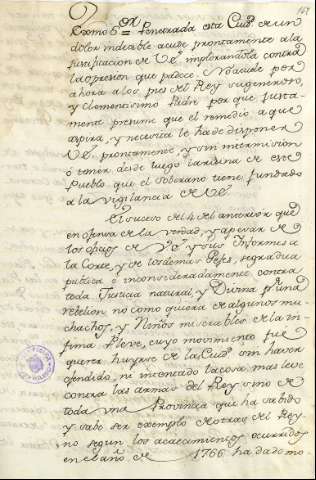 169
Exmo Sor = Penetrada esta Ciud. de un
dolor indecible acude prontamente a la
justificacion de V.E. implorandola contra
la opresion que padece. No acude por
ahora a los pies del Rey su generoso,
y Clementisimo Padre por que justa-
mente presume que el remedio a que
aspira, y necesita le ha de disponer
V.E. prontamente, y sin intermision
ó tener desde luego la ruina de este
Pueblo que el soberano tiene fundado
a la vigilancia de V.E.
El suceso del 4 del anterior que
en ofensa de la verdad, y apesar de
los oficios de V.E. y sus Informes a
la Corte, y de los demas Gefes, se gradua
publica e inconsideradamente contra
toda Justicia natural, y Divina pr. una
rebelion no como quiera de algunos mu-
chachos, y Niños miserables de la in-
fima Pleve, cuyo movimiento fue
querer huyrse de la Ciud. sin haver
ofendido, ni intentado la cosa mas leve
contra las armas del Rey sino de
toda una Provincia que ha sabido
y sabe ser exemplo de otras del Rey-
no segun los acaecimientos ocurridos
en el año de 1766 ha dado mo-